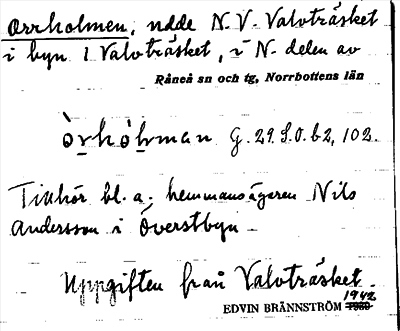 Orrholmen, udde N.V. Valvträsket
i byn 1 Valvträsket, i N. delen av
Råneå sn och tg, Norrbottens län
òrhòḷman G. 29. S.O. b2, 102.
Tillhör bl. a. hemmansägaren Nils
Andersson i Överstbyn
Uppgiften från Valvträsket.
1942
EDVIN BRÄNNSTRÖM 1930